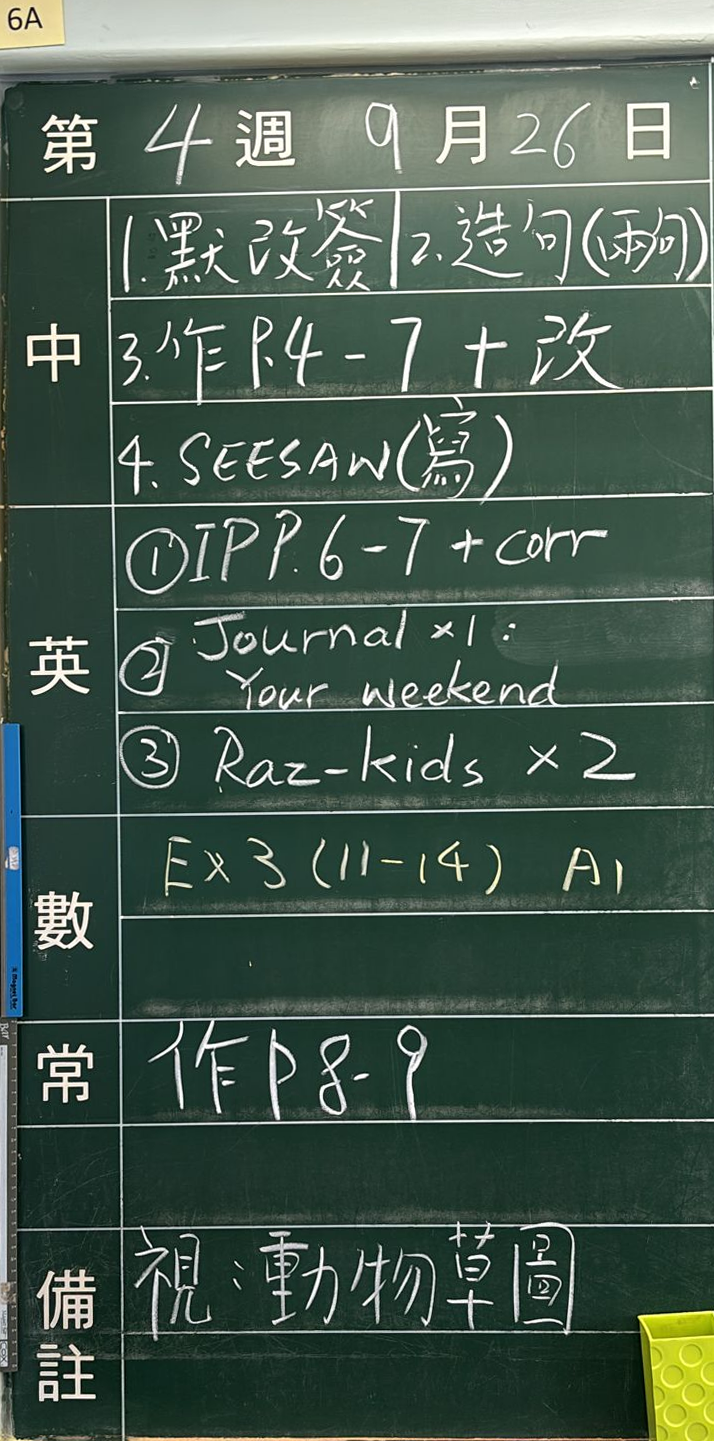 6A
第4週 9月26日
中
1.默改簽 2.造句(兩句)
3.作P.4-7+改
4.SEESAW(寫)
英
①IP P.6-7+corr
② Journal ×1:
Your weekend
③ Raz-kids ×2
數
Ex3(11-14) A1
常
作P8-9
備註
視:動物草圖